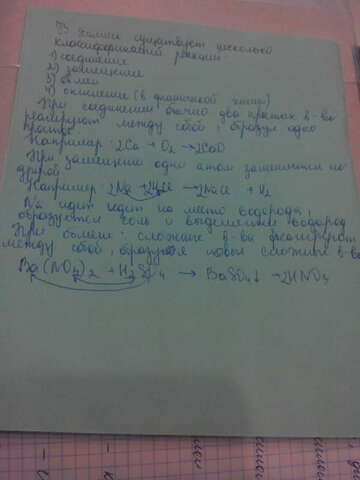 В химии существует несколько
классификаций реакций:
1) соединение
2) замещение
3) обмен
4) окисление (в органической химии)
При соединении обычно два простых в-ва
реагируют между собой, образуя одно
Например: 2Ca + O2 → 2CaO
При замещении один атом замещается на
другой
Например: 2Na + 2HCl → 2NaCl + H2
Na идет идет на место водорода,
образуется соль и выделяется водород
При обмене: сложные в-ва реагируют
между собой, образуя новые сложные в-ва
Ba(NO3)2 + H2SO4 → BaSO4↓ + 2HNO3